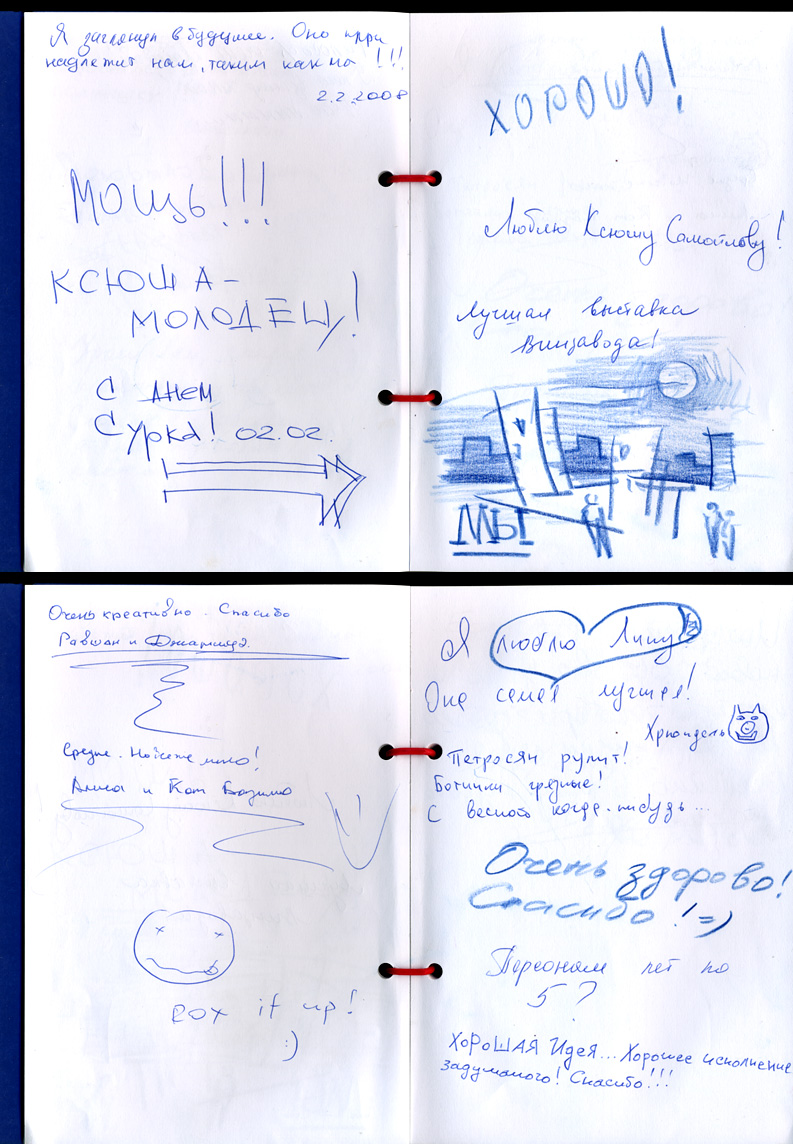 Я заглянул в будущее. Оно при
надлежит нам, таким как мы !!!
2.2.2008
МОЩЬ!!!
КСЮША -
МОЛОДЕЦ!
С ДНЕМ
Сурка! 02.02.
ХОРОШО!
Люблю Ксюшу Самойлову!
Лучшая выставка
Винзавода!
МЫ
Очень креативно. Спасибо
Равшан и Джамшуд.
Средне.
Анна и Кот Базилио
ROX it up!
:)
Я люблю Лину
Она самая лучшая!
Хрюндель
Петросян рулит!
Ботинки грязные!
С весной когда-нибудь...
Очень здорово!
Спасибо! =)
Персонам лет по
5?
ХОРОШАЯ Идея... Хорошее исполнение
задуманого! Спасибо!!!